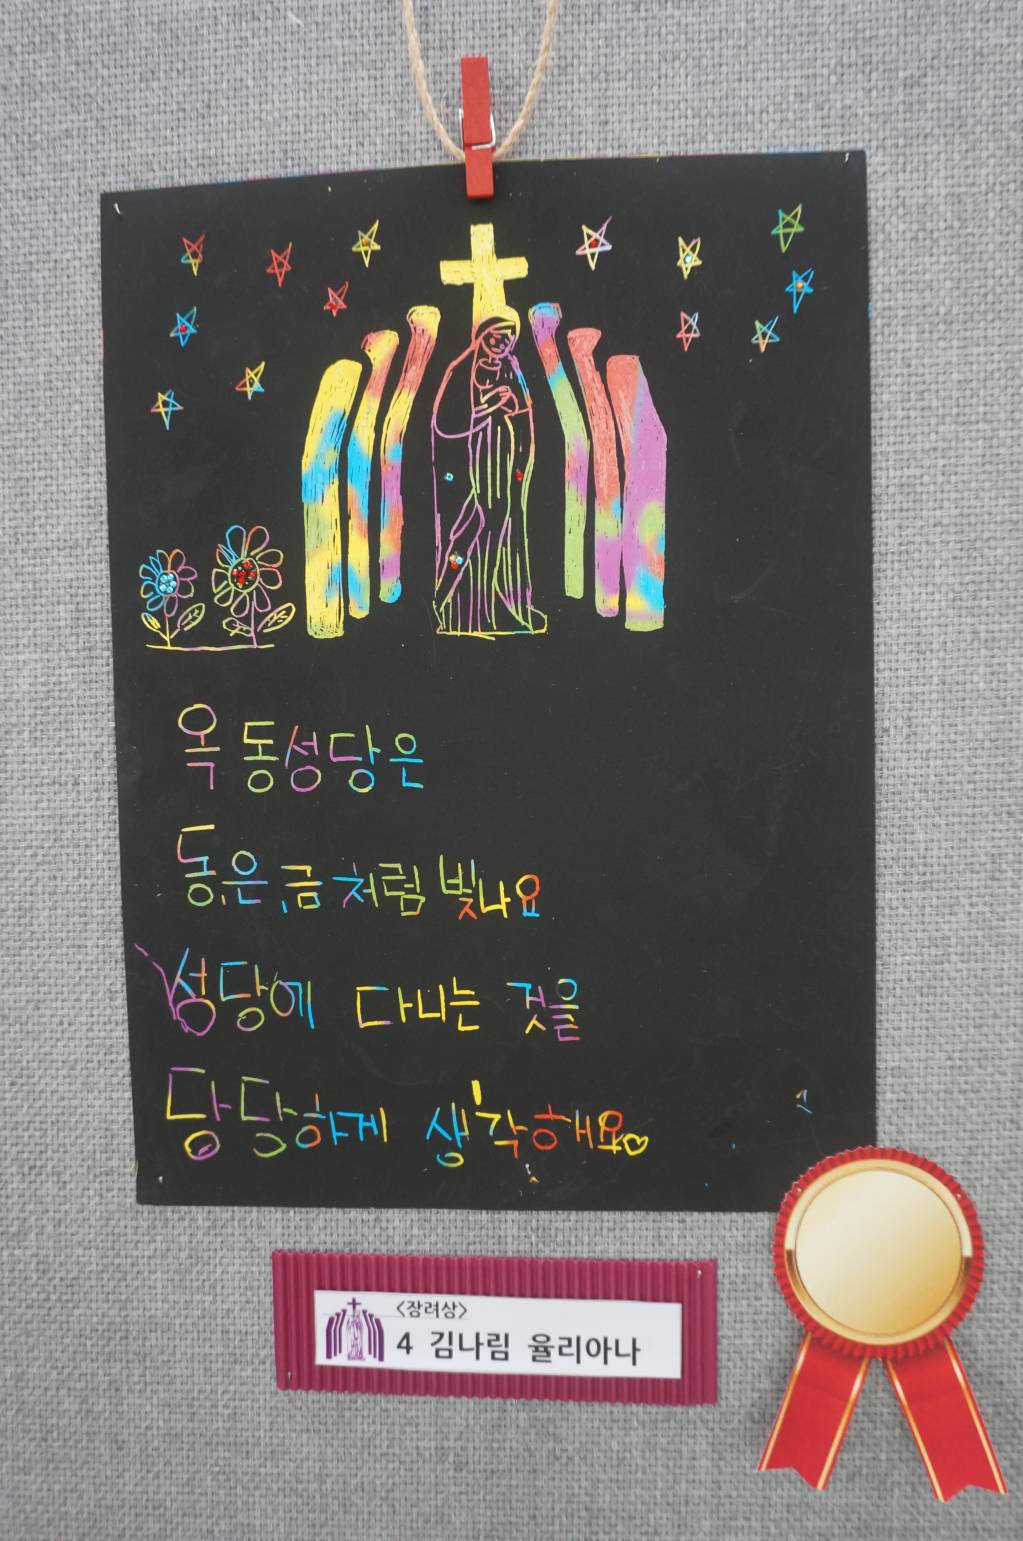 옥동성당은
동,은,금처럼 빛나요
성당에 다니는 것을
당당하게 생각해요♡
<장려상>
4 김나림 율리아나